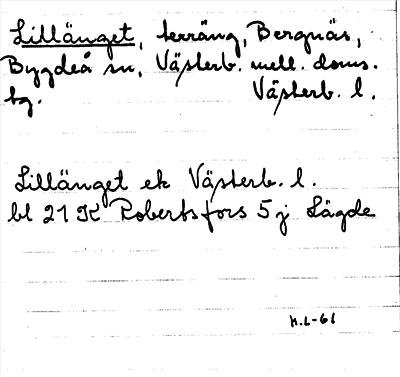 Lillänget, terräng, Bergnäs,
Bygdeå sn, Västerb. mell. doms.
tg. Västerb. l.
Lillänget ek Västerb. l.
bl 21 K Robertsfors 5 j Lägde
H.L-61